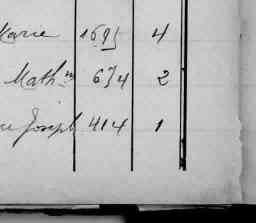 Marie 1695 4
Math 634 2
Joseph 414 1